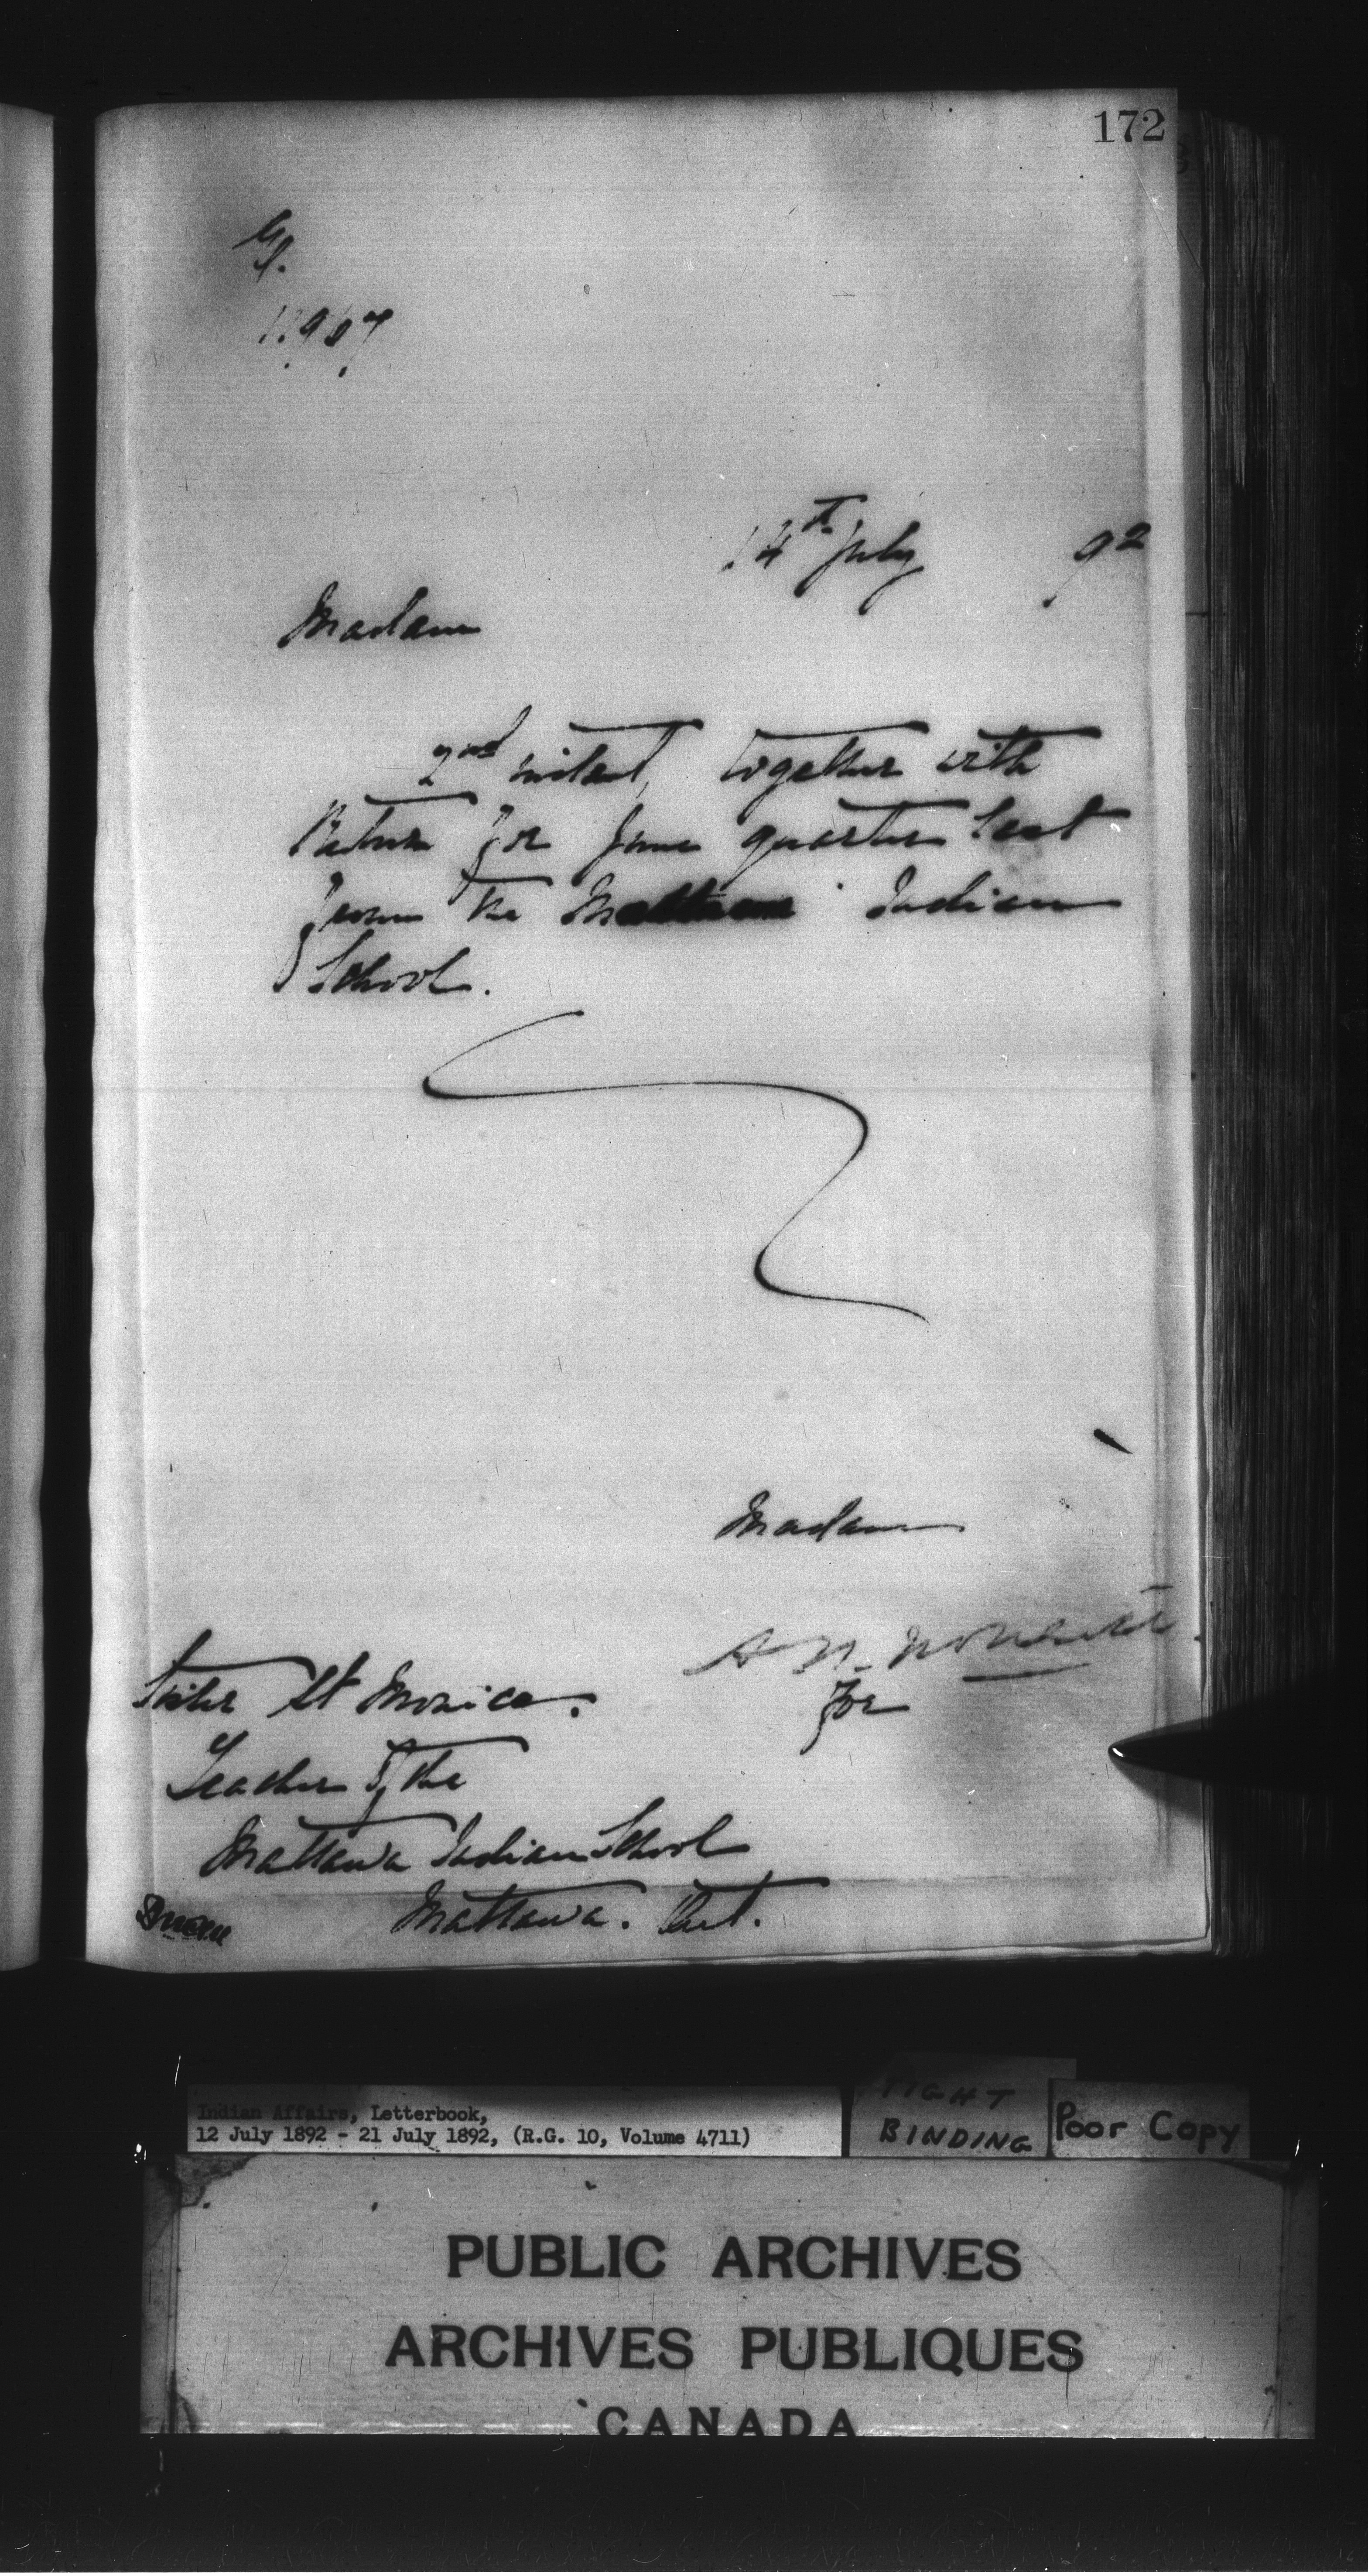 172
14th July 92
Madam
2nd instant, together with
Return for June quarter last
from the Mattawa Indian
School.
Madam
for
Sister St Monica.
Teacher of the
Mattawa Indian School
Mattawa. Ont.
Indian Affairs, Letterbook,
12 July 1892 - 21 July 1892, (R.G. 10, Volume 4711)
TIGHT
BINDING
Poor Copy
PUBLIC ARCHIVES
ARCHIVES PUBLIQUES
CANADA